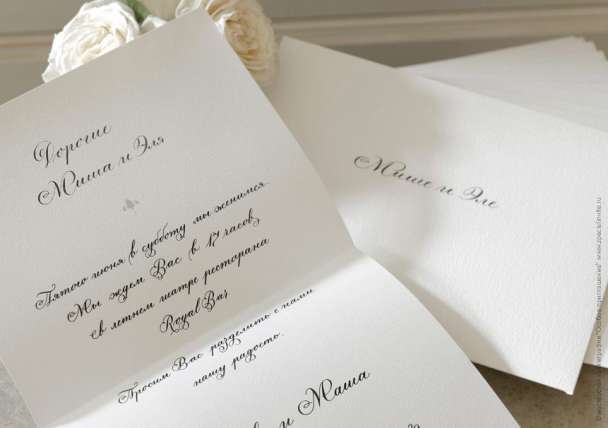 Дорогие
Миша и Эля
Пятого июня в субботу мы женимся.
Мы ждем Вас в 17 часов
в летнем театре ресторана
Royal Bar.
Просим Вас разделить с нами
нашу радость.
и Маша
Мише и Эле
"Особое приглашение" www.specialinvite.ru